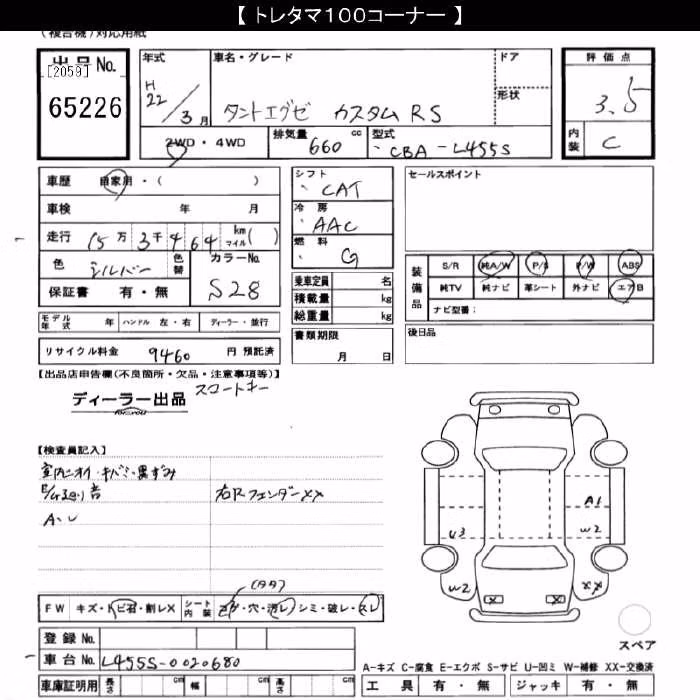 【 トレタマ100コーナー 】
(複合機)対応用紙
出品No.
[2059]
65226
年式
H22/3月
車名・グレード
タントエグゼ カスタムRS
ドア
形状
2WD・4WD
排気量
660 cc
型式
CBA-L455S
評価点
3.5
内装
C
車歴 自家用・( )
車検 年 月
走行 15万3千464 km マイル( )
色 シルバー 色替 カラーNo. S28
保証書 有・無
モデル年式 年 ハンドル 左・右 ディーラー・並行
リサイクル料金 9460 円 預託済
シフト CAT
冷房 AAC
燃料 G
乗車定員 名
積載量 kg
総重量 kg
書類期限
月 日
セールスポイント
装備品
S/R 純A/W P/S P/W ABS
純TV 純ナビ 革シート 外ナビ エアB
ナビ型番:
後日品
【出品店申告欄(不良箇所・欠品・注意事項等)】
ディーラー出品 for you
【検査員記入】
室内ニオイ・キバミ・黒ずみ
音
右Rフェンダーxx
A・U
A1
U3
W2
W2
XX
FW キズ・トビ石・割レX シート内装 コゲ・穴・汚レ シミ・破レ・スレ
登録No.
車台No. L455S-0020680
車庫証明用 長さ cm 幅 cm 高さ cm
スペア
A-キズ C-腐食 E-エクボ S-サビ U-凹ミ W-補修 XX-交換済
工具 有・無 ジャッキ 有・無